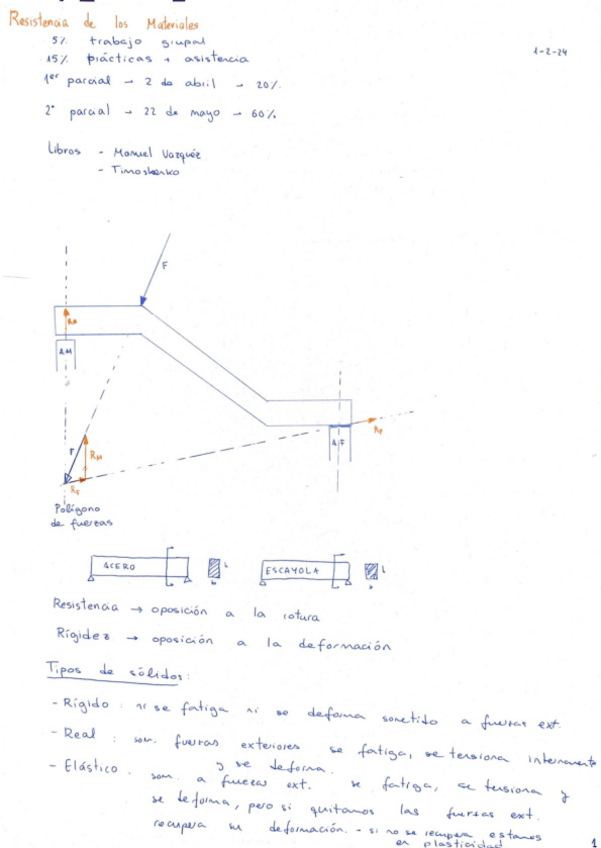 Resistencia de los Materiales
5% trabajo grupal
1-2-24
15% prácticas + asistencia
1er parcial → 2 de abril → 20%
2º parcial → 22 de mayo → 60%
Libros - Manuel Vazquéz
- Timoshenko
F
RM
A.M
A.F
RF
F
RM
RF
Polígono
de fuerzas
ACERO
ESCAYOLA
b
b
Resistencia → oposición a la rotura
Rigidez → oposición a la deformación
Tipos de sólidos:
- Rígido: ni se fatiga ni se deforma sometido a fuerzas ext.
- Real: som. fuerzas exteriores se fatiga, se tensiona internamente
y se deforma.
- Elástico. som. a fuerzas ext. se fatiga, se tensiona y
se deforma, pero si quitamos las fuerzas ext.
recupera su deformación. - si no se recupera estamos
en plasticidad
1